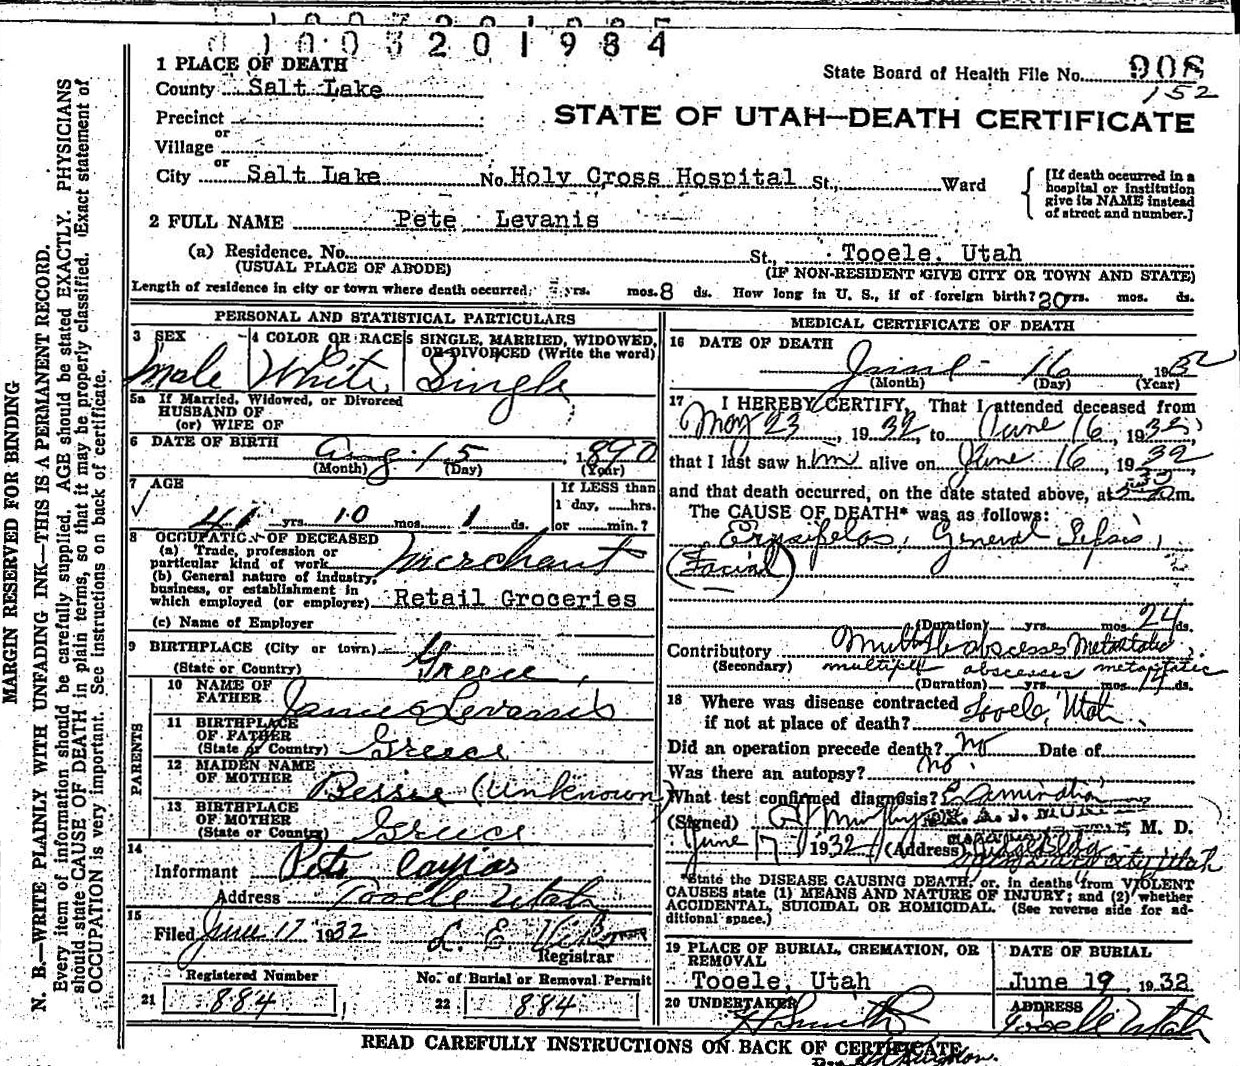 1003201984
1 PLACE OF DEATH
State Board of Health File No. 908
152
County Salt Lake
STATE OF UTAH—DEATH CERTIFICATE
Precinct
or
Village
or
City Salt Lake No. Holy Cross Hospital St., Ward
[If death occurred in a hospital or institution give its NAME instead of street and number.]
2 FULL NAME Pete Levanis
(a) Residence. No. St., Tooele, Utah
(USUAL PLACE OF ABODE) (IF NON-RESIDENT GIVE CITY OR TOWN AND STATE)
Length of residence in city or town where death occurred, yrs. mos. 8 ds. How long in U. S., if of foreign birth? 20 yrs. mos. ds.
PERSONAL AND STATISTICAL PARTICULARS
3 SEX
Male
4 COLOR OR RACE
White
5 SINGLE, MARRIED, WIDOWED, OR DIVORCED (Write the word)
Single
5a If Married, Widowed, or Divorced
HUSBAND OF
(or) WIFE OF
6 DATE OF BIRTH Aug. 15, 1890
(Month) (Day) (Year)
7 AGE
41 yrs. 10 mos. 1 ds.
If LESS than
1 day, hrs.
or min.?
8 OCCUPATION OF DECEASED
(a) Trade, profession or
particular kind of work Merchant
(b) General nature of industry,
business, or establishment in
which employed (or employer) Retail Groceries
(c) Name of Employer
9 BIRTHPLACE (City or town)
(State or Country) Greece
PARENTS
10 NAME OF
FATHER James Levanis
11 BIRTHPLACE
OF FATHER
(State or Country) Greece
12 MAIDEN NAME
OF MOTHER Bessie (Unknown)
13 BIRTHPLACE
OF MOTHER
(State or Country) Greece
14
Informant Pete Cayias
Address Tooele Utah
15
Filed June 17 1932 L. E.
Registrar
Registered Number
21 884
No. of Burial or Removal Permit
22 884
MEDICAL CERTIFICATE OF DEATH
16 DATE OF DEATH
June 16, 1932
(Month) (Day) (Year)
17 I HEREBY CERTIFY, That I attended deceased from
May 23, 1932, to June 16, 1932,
that I last saw him alive on June 16, 1932
and that death occurred, on the date stated above, at m.
The CAUSE OF DEATH* was as follows:
Erysipelas, General Sepsis,
(Facial)
(Duration) yrs. mos. 24 ds.
Contributory Multiple abscesses Metastatic
(Secondary) multiple abscesses metastatic
(Duration) yrs. mos. 14 ds.
18 Where was disease contracted
if not at place of death? Tooele, Utah
Did an operation precede death? No Date of
Was there an autopsy? No.
What test confirmed diagnosis? Examination
(Signed) A J Murphy M. D.
June 17, 1932 (Address) City Utah
*State the DISEASE CAUSING DEATH, or, in deaths from VIOLENT
CAUSES state (1) MEANS AND NATURE OF INJURY; and (2) whether
ACCIDENTAL, SUICIDAL OR HOMICIDAL. (See reverse side for ad-
ditional space.)
19 PLACE OF BURIAL, CREMATION, OR
REMOVAL
Tooele, Utah
DATE OF BURIAL
June 19, 1932
20 UNDERTAKER
ADDRESS
Tooele Utah
READ CAREFULLY INSTRUCTIONS ON BACK OF CERTIFICATE
MARGIN RESERVED FOR BINDING
N. B.—WRITE PLAINLY WITH UNFADING INK—THIS IS A PERMANENT RECORD.
Every item of information should be carefully supplied. AGE should be stated EXACTLY. PHYSICIANS
should state CAUSE OF DEATH in plain terms, so that it may be properly classified. Exact statement of
OCCUPATION is very important. See instructions on back of certificate.